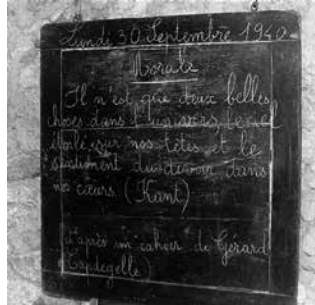 Lundi 30 Septembre 1940
Morale
Il n'est que deux belles
choses dans l'univers, le ciel
étoilé sur nos têtes et le
sentiment du devoir dans
nos cœurs. (Kant)
d'après un cahier de Gérard
Capdegelle)